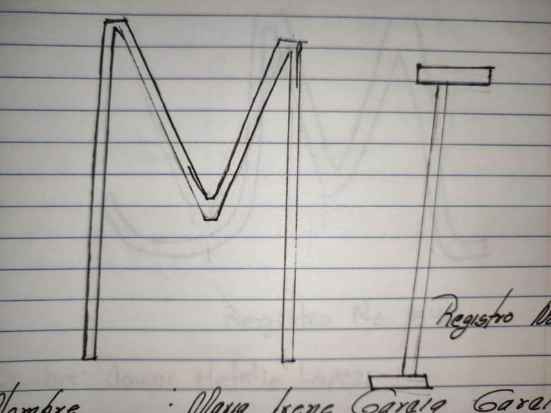 MI
Registro No
Nombre : Maria Irene Garcia Garci